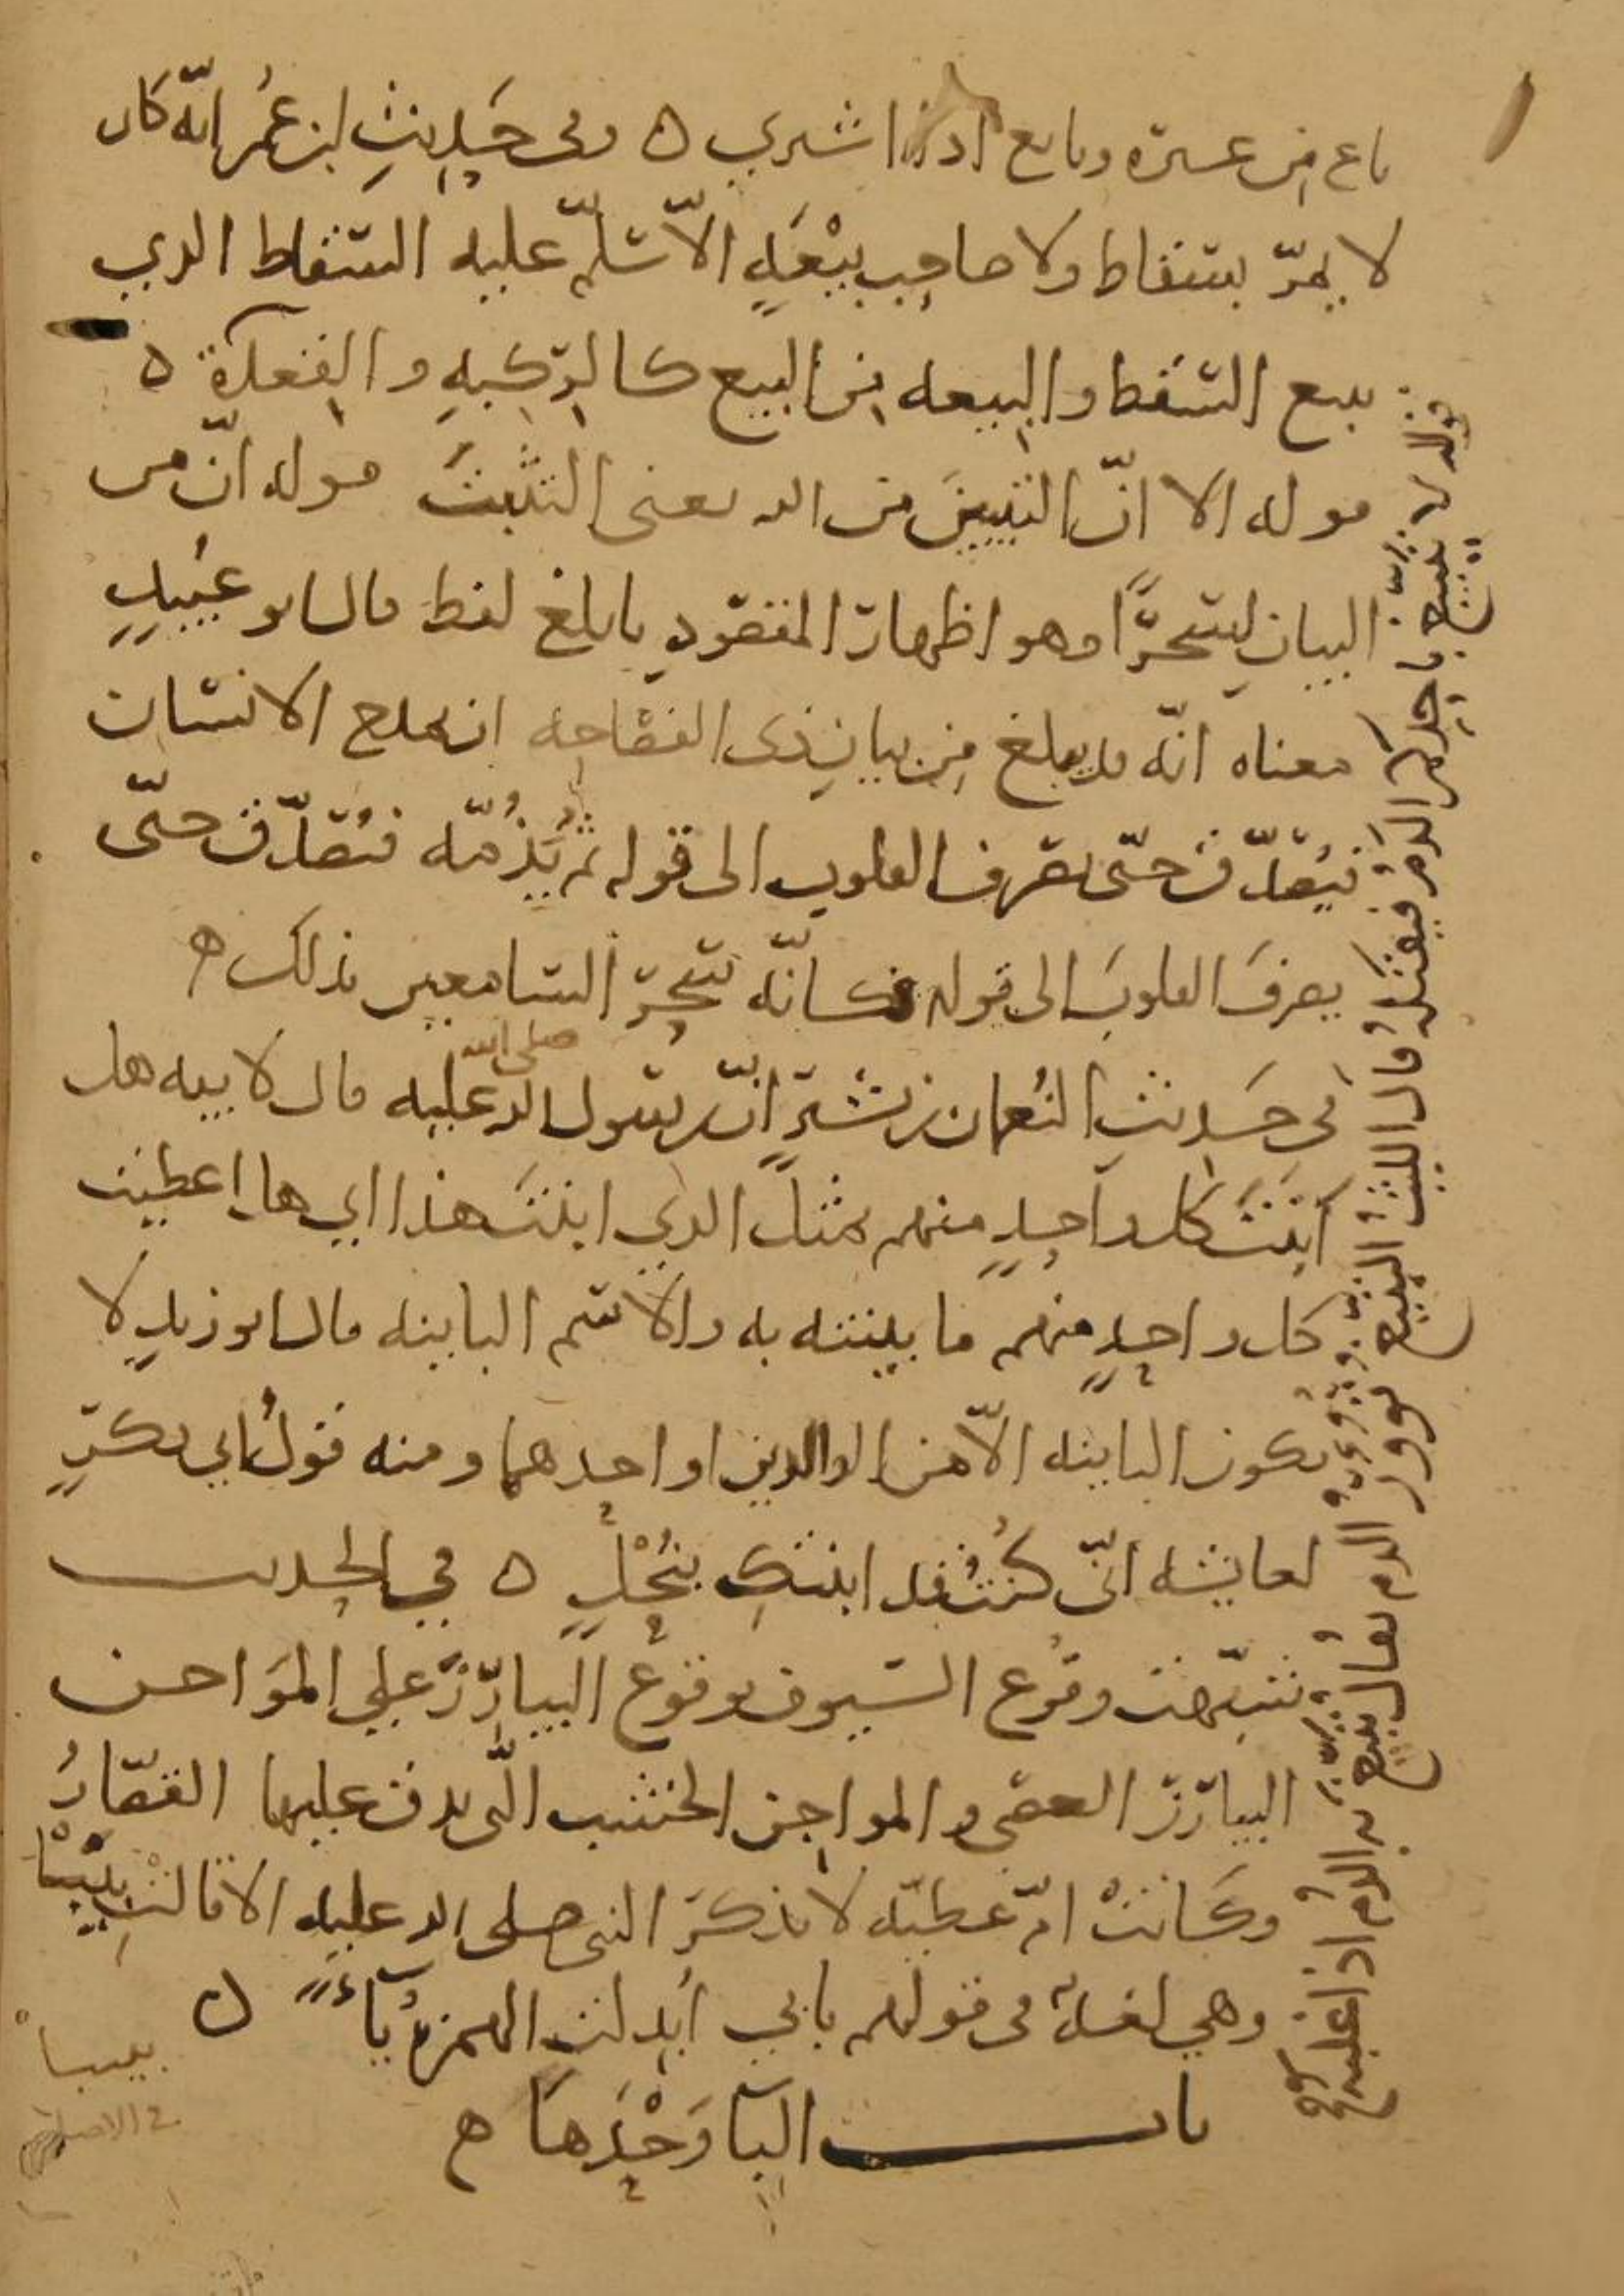 باع من غيره وبايع اذا اشتري ه وفي حَدِيثِ ابن عُمَر انّه كان
لا يمرّ بسقاط ولا صاحِب بِيْعَةٍ الاّ سلّم عليه السقاط الذي
يبيع السَّقَط والبِيعه مِن البيع كالرِّكبةِ والقِعدة ه
قوله الا انّ التبيينَ من الله يعني التثبتَ قوله انّ من
البيانِ لسحرًا وهو اظهار المقصودِ بابلغ لفظ قال ابو عُبيدٍ
معناه انّه يبلغ مِن بيانِ ذي الفصاحه ان يمدح الانسان
فيُصدّق حتّى يصرف القلوب الى قوله ثم يَذُمّه فيُصدّق حتّى
يصرفَ القلوبَ الى قوله فكانّه سحَرَ السامعين بذلك ه
في حَديثِ النُعمان بن بشيرٍ انّ رسول الله صلى الله عليه قال لابيه هل
اَبَنْتَ كل واحِدٍ منهم بمثل الذي ابنتَ هذا اي هل اعطيت
كل واحدٍ منهم ما بينته به والاسم البائنه قال ابو زيدٍ لا
يكون البائنه الاّ من الوالدين او احدهما ومنه قولُ ابي بكرٍ
لعايشه انّي كُنتُ قد ابنتكِ بنُحْلٍ ه في الحديث
شبّهت وقوع السيوف بوقوع البيازِر على المَواجن
البيازر العصي والمواجِن الخشب الّتي يدق عليها القصّارُ
وكانتْ امّ عطيّه لا تذكر النبي صلى الله عليه الا قالتْ بِيَبَا
وهي لغةٌ في قولهم بابي اُبدِلت الهمزةُ ياءً ه
بيبا
في الاصل
باب البَا وَحْدَها ه
قوله لا يتبيّغ باحدكم الدمُ فيقتلَهُ قال الليثُ التبيّغ ثؤور الدم يقالُ تبيّغ به الدمُ اذا غلبه